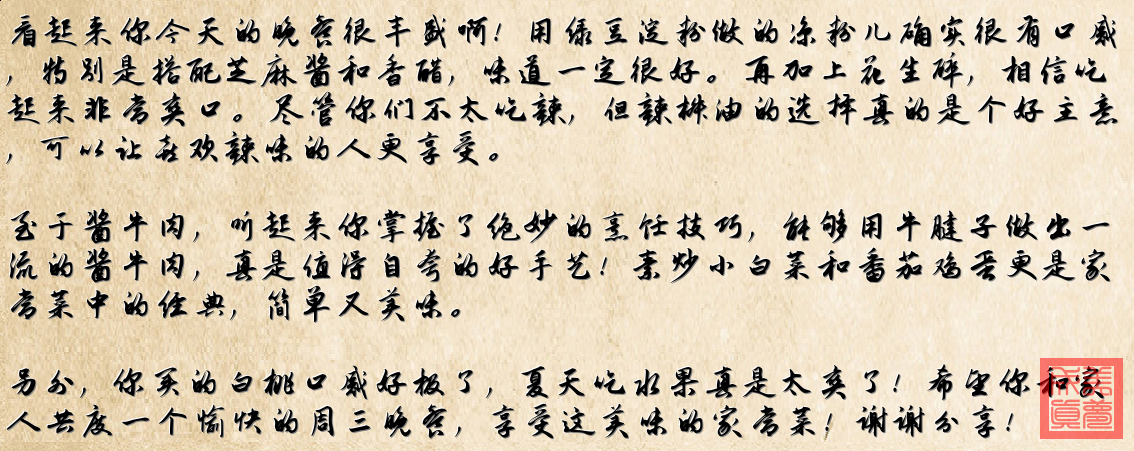 看起来你今天的晚餐很丰盛啊！用绿豆淀粉做的凉粉儿确实很有口感
，特别是搭配芝麻酱和香醋，味道一定很好。再加上花生碎，相信吃
起来非常爽口。尽管你们不太吃辣，但辣椒油的选择真的是个好主意
，可以让喜欢辣味的人更享受。
至于酱牛肉，听起来你掌握了绝妙的烹饪技巧，能够用牛腱子做出一
流的酱牛肉，真是值得自夸的好手艺！素炒小白菜和番茄鸡蛋更是家
常菜中的经典，简单又美味。
另外，你买的白桃口感好极了，夏天吃水果真是太爽了！希望你和家
人共度一个愉快的周三晚餐，享受这美味的家常菜！谢谢分享！